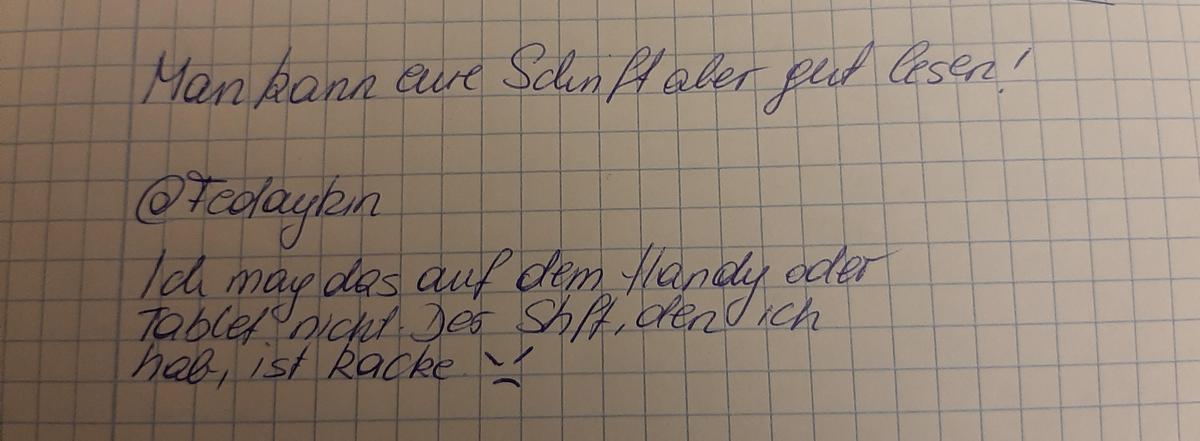 Man kann eure Schrift aber gut lesen!
@Fedaykin
Ich mag das auf dem Handy oder
Tablet nicht. Der Stift, den ich
hab, ist kacke